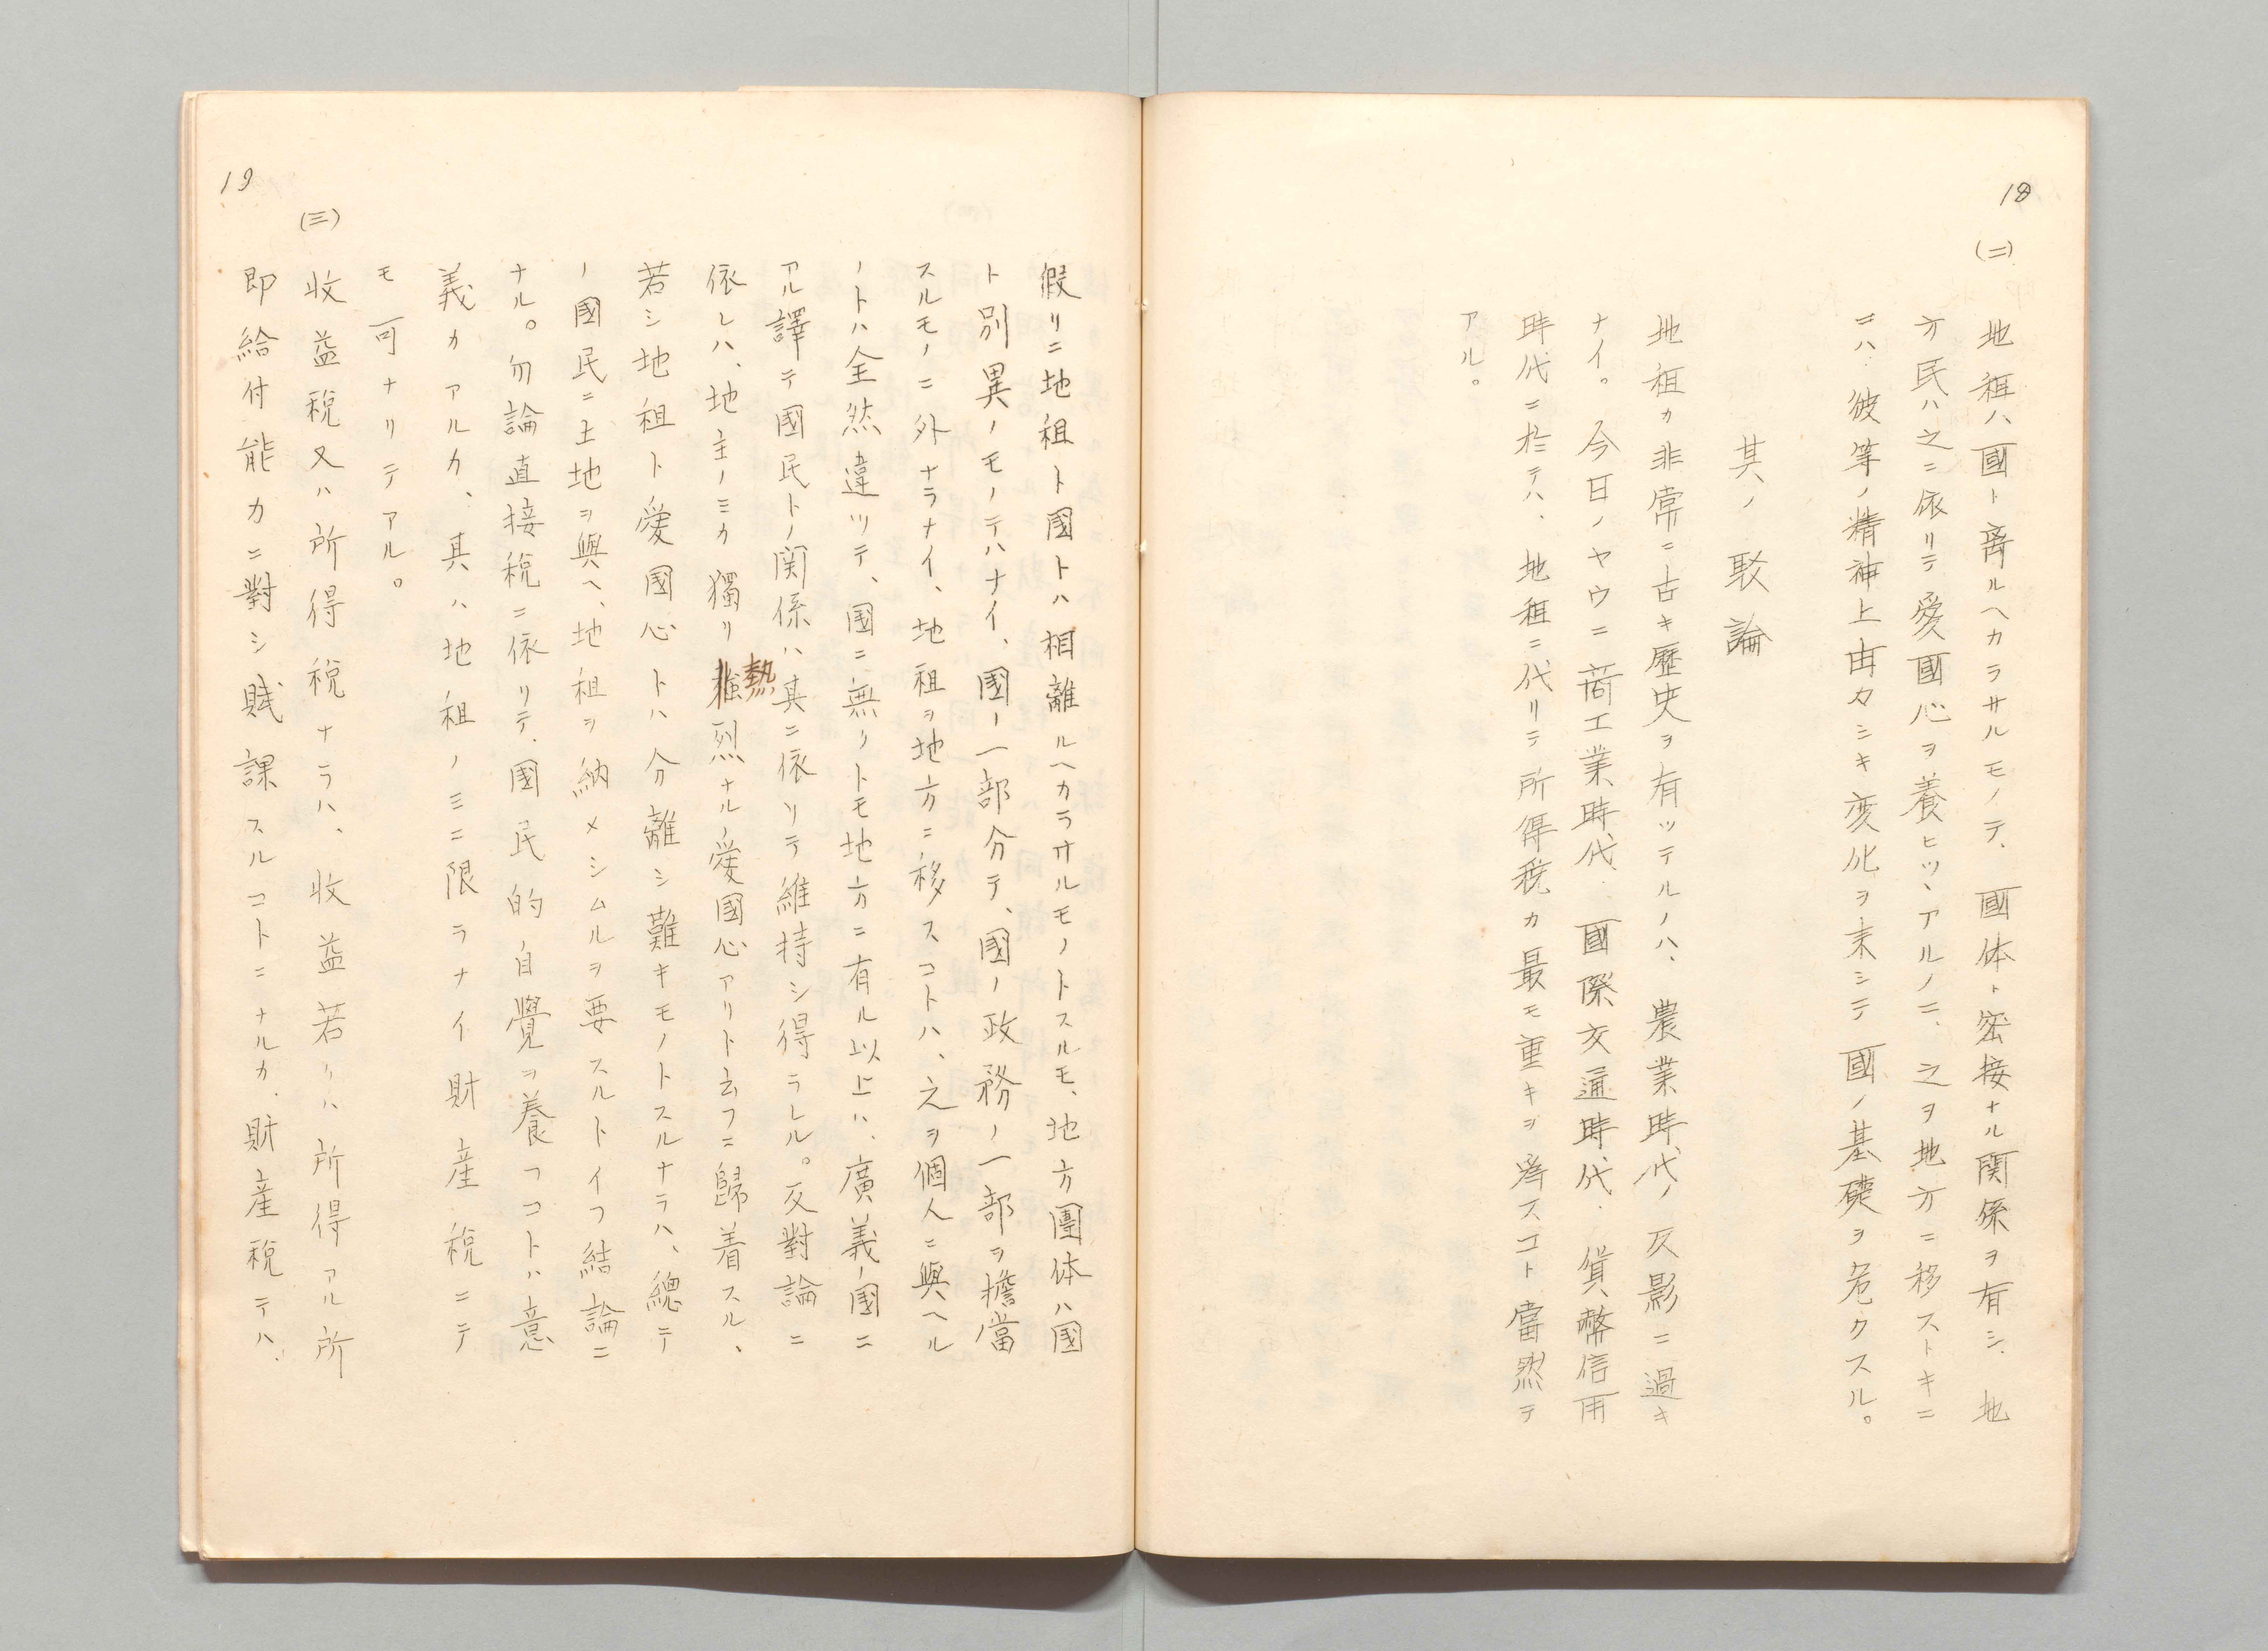 18
(二)
地租ハ國ト離ルヘカラサルモノテ、國体ト密接ナル関係ヲ有シ、地
方民ハ之ニ依リテ愛國心ヲ養ヒツヽアルノニ、之ヲ地方ニ移ストキニ
ニハ、彼等ノ精神上由々シキ変化ヲ来シテ國ノ基礎ヲ危クスル。
其ノ駁論
地租カ非常ニ古キ歴史ヲ有ツテルノハ、農業時代ノ反影ニ過キ
ナイ。今日ノヤウニ商工業時代、國際交通時代、貨幣信用
時代ニ於テハ、地租ニ代リテ所得税カ最モ重キヲ為スコト當然テ
アル。
假リニ地租ト國トハ相離ルヘカラサルモノトスルモ、地方團体ハ国
ト別異ノモノテハナイ、國ノ一部分テ、國ノ政務ノ一部ヲ擔當
スルモノニ外ナラナイ、地租ヲ地方ニ移スコトハ、之ヲ個人ニ與ヘル
ノトハ全然違ツテ、國ニ無リトモ地方ニ有ル以上ハ、廣義ノ國ニ
アル譯テ國民トノ関係ハ其ニ依リテ維持シ得ラレル。反對論ニ
依レハ、地主ノミカ獨リ熱烈ナル愛國心アリト云フニ歸着スル、
若シ地租ト愛國心トハ分離シ難キモノトスルナラハ、總テ
ノ國民ニ土地ヲ與ヘ、地租ヲ納メシムルヲ要スルトイフ結論ニ
ナル。勿論直接税ニ依リテ、國民的自覺ヲ養フコトハ意
義カアルカ、其ハ地租ノミニ限ラナイ財産税ニテ
モ可ナリテアル。
19
(三)
收益税又ハ所得税ナラハ、收益若リハ所得アル所
即給付能力ニ對シ賦課スルコトニナルカ、財産税テハ、